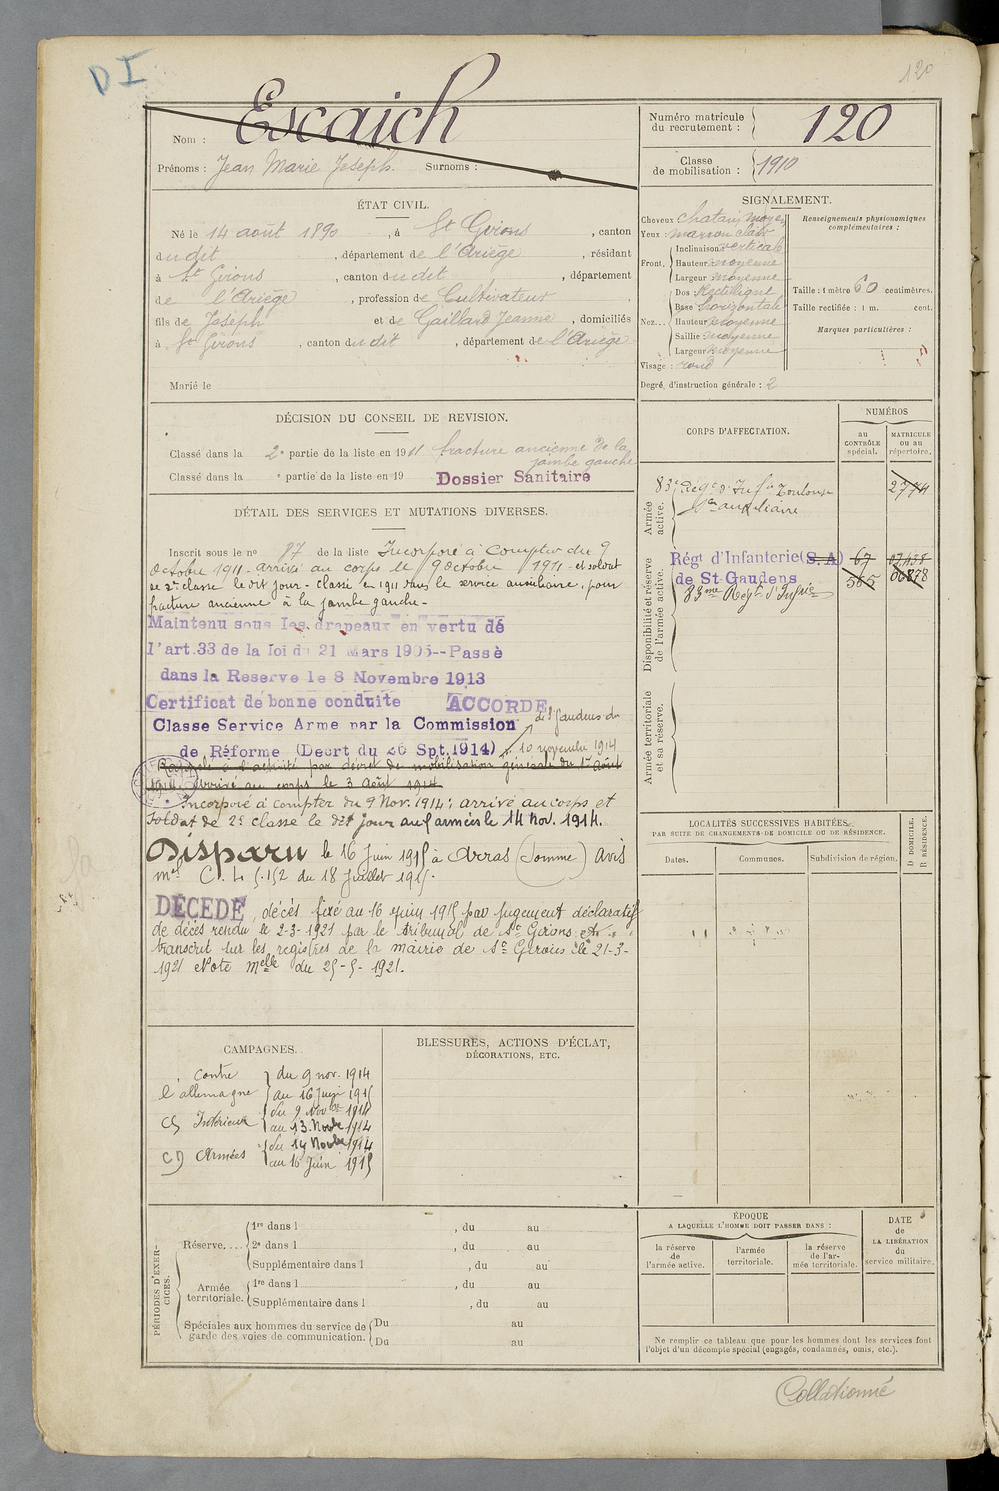 D I
120
Nom : Escaich
Prénoms : Jean Marie Joseph. Surnoms :
Numéro matricule du recrutement : 120
Classe de mobilisation : 1910
ÉTAT CIVIL.
Né le 14 août 1890, à St Girons, canton
dudit, département de l'Ariège, résidant
à St Girons, canton dudit, département
de l'Ariège, profession de Cultivateur
fils de Joseph et de Gaillard Jeanne, domiciliés
à St Girons, canton dudit, département de l'Ariège
Marié le
SIGNALEMENT.
Cheveux chatain moyen
Yeux : marron clair
Front. Inclinaison verticale
Hauteur moyenne
Largeur moyenne
Nez... Dos : Rectiligne
Base horizontale
Hauteur moyenne
Saillie moyenne
Largeur moyenne
Visage : rond
Renseignements physionomiques complémentaires :
Taille : 1 mètre 60 centimètres.
Taille rectifiée : 1 m. cent.
Marques particulières :
Degré d'instruction générale : 2
DÉCISION DU CONSEIL DE REVISION.
Classé dans la 2e partie de la liste en 1911 fracture ancienne de la
jambe gauche
Classé dans la e partie de la liste en 19 Dossier Sanitaire
DÉTAIL DES SERVICES ET MUTATIONS DIVERSES.
Inscrit sous le no 87 de la liste Incorporé à compter du 9
Octobre 1911 - arrivé au corps le 9 Octobre 1911 - et soldat
de 2e classe le dit jour - classé en 1911 dans le service auxiliaire, pour
fracture ancienne à la jambe gauche -
Maintenu sous les drapeaux en vertu de
l'art.33 de la loi du 21 Mars 1905--Passé
dans la Reserve le 8 Novembre 1913
Certificat de bonne conduite ACCORDE
Classe Service Arme par la Commission
de St Gaudens du
de Réforme (Decrt du 26 Spt.1914) 10 novembre 1914
Rappelé à l'activité par décret de mobilisation générale du 1er Août
1914. Arrivé au corps le 3 Août 1914
Incorporé à compter du 9 Nov. 1914 ; arrivé au corps et
soldat de 2e classe le dit jour aux armées le 14 nov. 1914.
Disparu le 16 Juin 1915 à Arras (Somme) Avis
mel C. L 5.152 du 18 Juillet 1915.
DÉCÉDÉ, décès fixé au 16 juin 1915 par jugement déclaratif
de décès rendu le 2-3-1921 par le tribunal de St Girons
transcrit sur les registres de la mairie de St Girons le 21-3-
1921 Note melle du 25-5-1921.
CORPS D'AFFECTATION.
NUMÉROS
au CONTRÔLE spécial.
MATRICULE ou au répertoire.
Armée active.
83e Régt d'Infie Toulouse 2774
Sce auxiliaire
Disponibilité et réserve de l'armée active.
Régt d'Infanterie (S.A) 67
de St Gaudens 565
83me Regt d'Infrie
Armée territoriale et sa réserve.
LOCALITÉS SUCCESSIVES HABITÉES
PAR SUITE DE CHANGEMENTS DE DOMICILE OU DE RÉSIDENCE.
D DOMICILE. R RÉSIDENCE.
Dates. Communes. Subdivision de région.
CAMPAGNES.
contre du 9 nov. 1914
l'allemagne au 16 Juin 1915
CS Intérieur du 9 Novbre 1914
au 13 Novbe 1914
CD Armées du 14 Novbe 1914
au 16 Juin 1915
BLESSURES, ACTIONS D'ÉCLAT,
DÉCORATIONS, ETC.
PÉRIODES D'EXERCICES.
Réserve.... 1re dans l , du au
2e dans l , du au
Supplémentaire dans l , du au
Armée territoriale. 1re dans l , du au
Supplémentaire dans l , du au
Spéciales aux hommes du service de garde des voies de communication. Du au
Du au
ÉPOQUE
A LAQUELLE L'HOMME DOIT PASSER DANS :
la réserve de l'armée active.
l'armée territoriale.
la réserve de l'armée territoriale.
DATE de LA LIBÉRATION du service militaire.
Ne remplir ce tableau que pour les hommes dont les services font
l'objet d'un décompte spécial (engagés, condamnés, omis, etc.).
Collationné